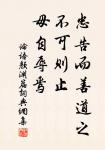 忠告而善道之
不可则止
毋自辱焉
论语颜渊篇词典网集